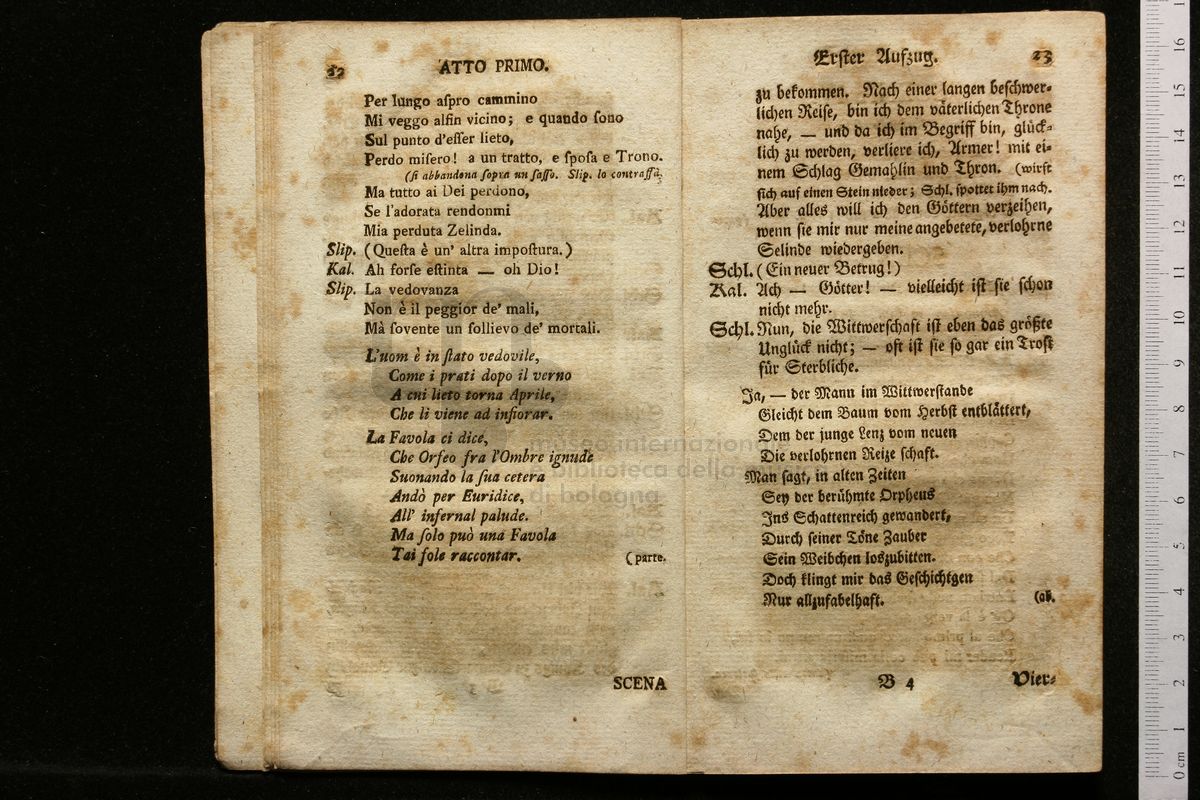 22
ATTO PRIMO.
Per lungo aſpro cammino
Mi veggo alfin vicino; e quando ſono
Sul punto d'eſſer lieto,
Perdo miſero! a un tratto, e ſpoſa e Trono.
(ſi abbandona ſopra un ſaſſo. Slip. lo contraffà.
Ma tutto ai Dei perdono,
Se l'adorata rendonmi
Mia perduta Zelinda.
Slip. (Queſta è un' altra impoſtura.)
Kal. Ah forſe eſtinta — oh Dio!
Slip. La vedovanza
Non è il peggior de' mali,
Mà ſovente un ſollievo de' mortali.
L'uom è in ſtato vedovile,
Come i prati dopo il verno
A cui lieto torna Aprile,
Che li viene ad infiorar.
La Favola ci dice,
Che Orfeo fra l'Ombre ignude
Suonando la ſua cetera
Andò per Euridice,
All' infernal palude.
Ma ſolo può una Favola
Tai fole raccontar.
(parte.
SCENA
Erſter Aufzug.
23
zu bekommen. Nach einer langen beſchwer-
lichen Reiſe, bin ich dem väterlichen Throne
nahe, — und da ich im Begriff bin, glück-
lich zu werden, verliere ich, Armer! mit ei-
nem Schlag Gemahlin und Thron. (wirft
ſich auf einen Stein nieder; Schl. ſpottet ihm nach.
Aber alles will ich den Göttern verzeihen,
wenn ſie mir nur meine angebetete, verlohrne
Selinde wiedergeben.
Schl. (Ein neuer Betrug!)
Kal. Ach — Götter! — vielleicht iſt ſie ſchon
nicht mehr.
Schl. Nun, die Wittwerſchaft iſt eben das größte
Unglück nicht; — oft iſt ſie ſo gar ein Troſt
für Sterbliche.
Ja, — der Mann im Wittwerſtande
Gleicht dem Baum vom Herbſt entblättert,
Dem der junge Lenz vom neuen
Die verlohrnen Reize ſchaft.
Man ſagt, in alten Zeiten
Sey der berühmte Orpheus
Ins Schattenreich gewandert,
Durch ſeiner Töne Zauber
Sein Weibchen loszubitten.
Doch klingt mir das Geſchichtgen
Nur allzufabelhaft.
(ab.
B 4
Vier-
museo internazionale
e biblioteca della musica
di bologna
0 cm 1 2 3 4 5 6 7 8 9 10 11 12 13 14 15 16